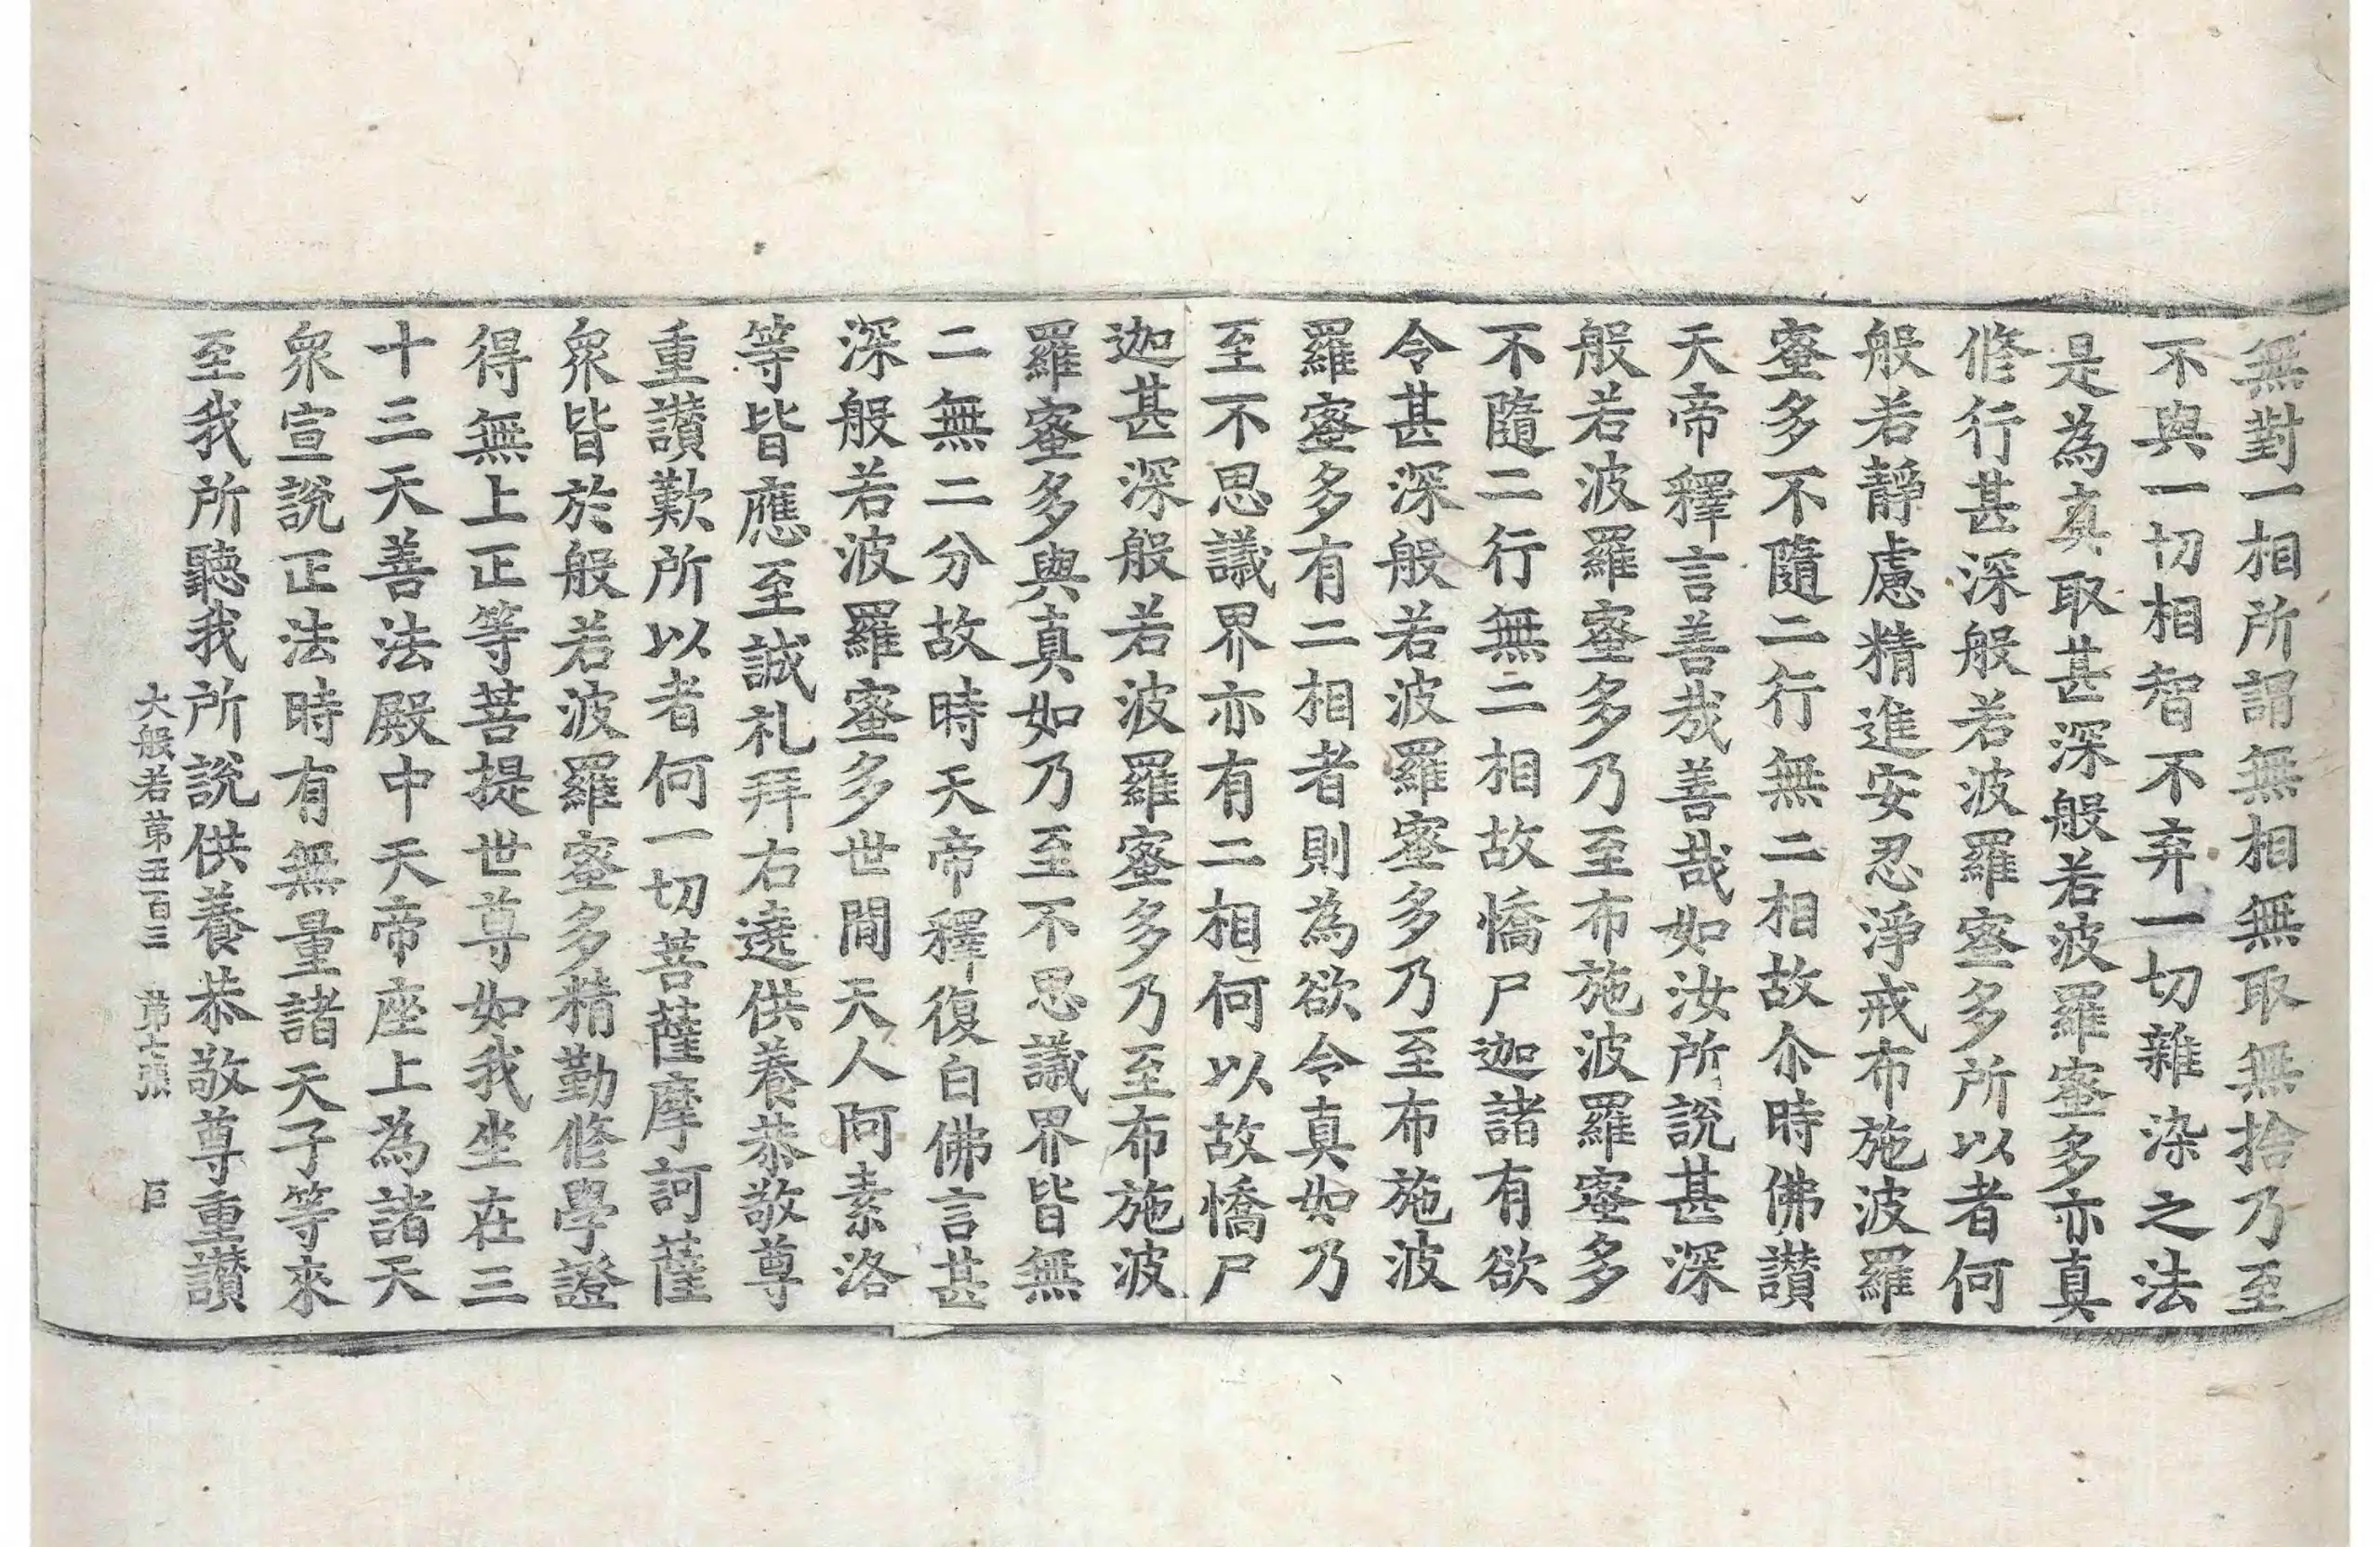 無對一相所謂無相無取無捨乃至
不與一切相智不弃一切雜染之法
是為真取甚深般若波羅蜜多亦真
修行甚深般若波羅蜜多所以者何
般若靜慮精進安忍淨戒布施波羅
蜜多不隨二行無二相故尒時佛讃
天帝釋言善哉善哉如汝所說甚深
般若波羅蜜多乃至布施波羅蜜多
不隨二行無二相故憍尸迦諸有欲
令甚深般若波羅蜜多乃至布施波
羅蜜多有二相者則為欲令真如乃
至不思議界亦有二相何以故憍尸
迦甚深般若波羅蜜多乃至布施波
羅蜜多與真如乃至不思議界皆無
二無二分故時天帝釋復白佛言甚
深般若波羅蜜多世間天人阿素洛
等皆應至誠礼拜右遶供養恭敬尊
重讃歎所以者何一切菩薩摩訶薩
衆皆於般若波羅蜜多精勤修學證
得無上正等菩提世尊如我坐在三
十三天善法殿中天帝座上為諸天
衆宣說正法時有無量諸天子等來
至我所聽我所說供養恭敬尊重讃
大般若第五百三 第七張 巨